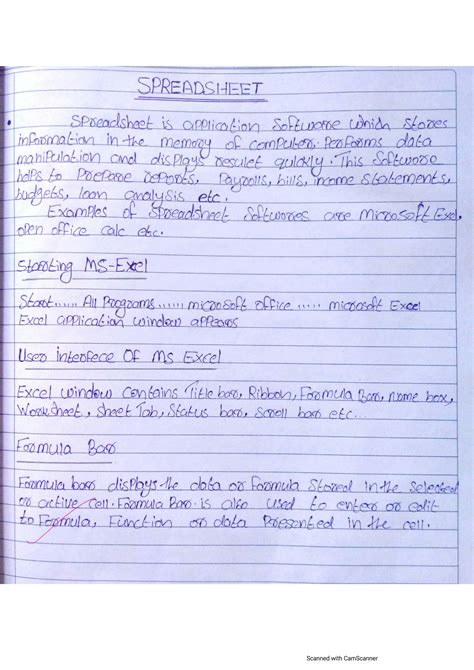 SPREADSHEET
Spreadsheet is application Software which stores
information in the memory of computer. Performs data
manipulation and displays result quickly. This Software
helps to Prepare reports, Payrolls, bills, income statements,
budgets, loan analysis etc.
Examples of Spreadsheet Softwares are Microsoft Exel,
open office calc etc.
Starting MS-Excel
Start...... All Programs ...... microsoft office ..... microsoft Excel
Excel application window appears
User interfece Of Ms Excel
Excel window Contains Title bar, Ribbon, Formula Bar, name box,
Worksheet, Sheet Tab, Status bar, Scroll bar etc...
Formula Bar
Formula bar displays the data or Formula Stored in the Selected
or active cell. Formula Bar is also used to enter or edit
to Formula, Function or data Presented in the cell.
Scanned with CamScanner